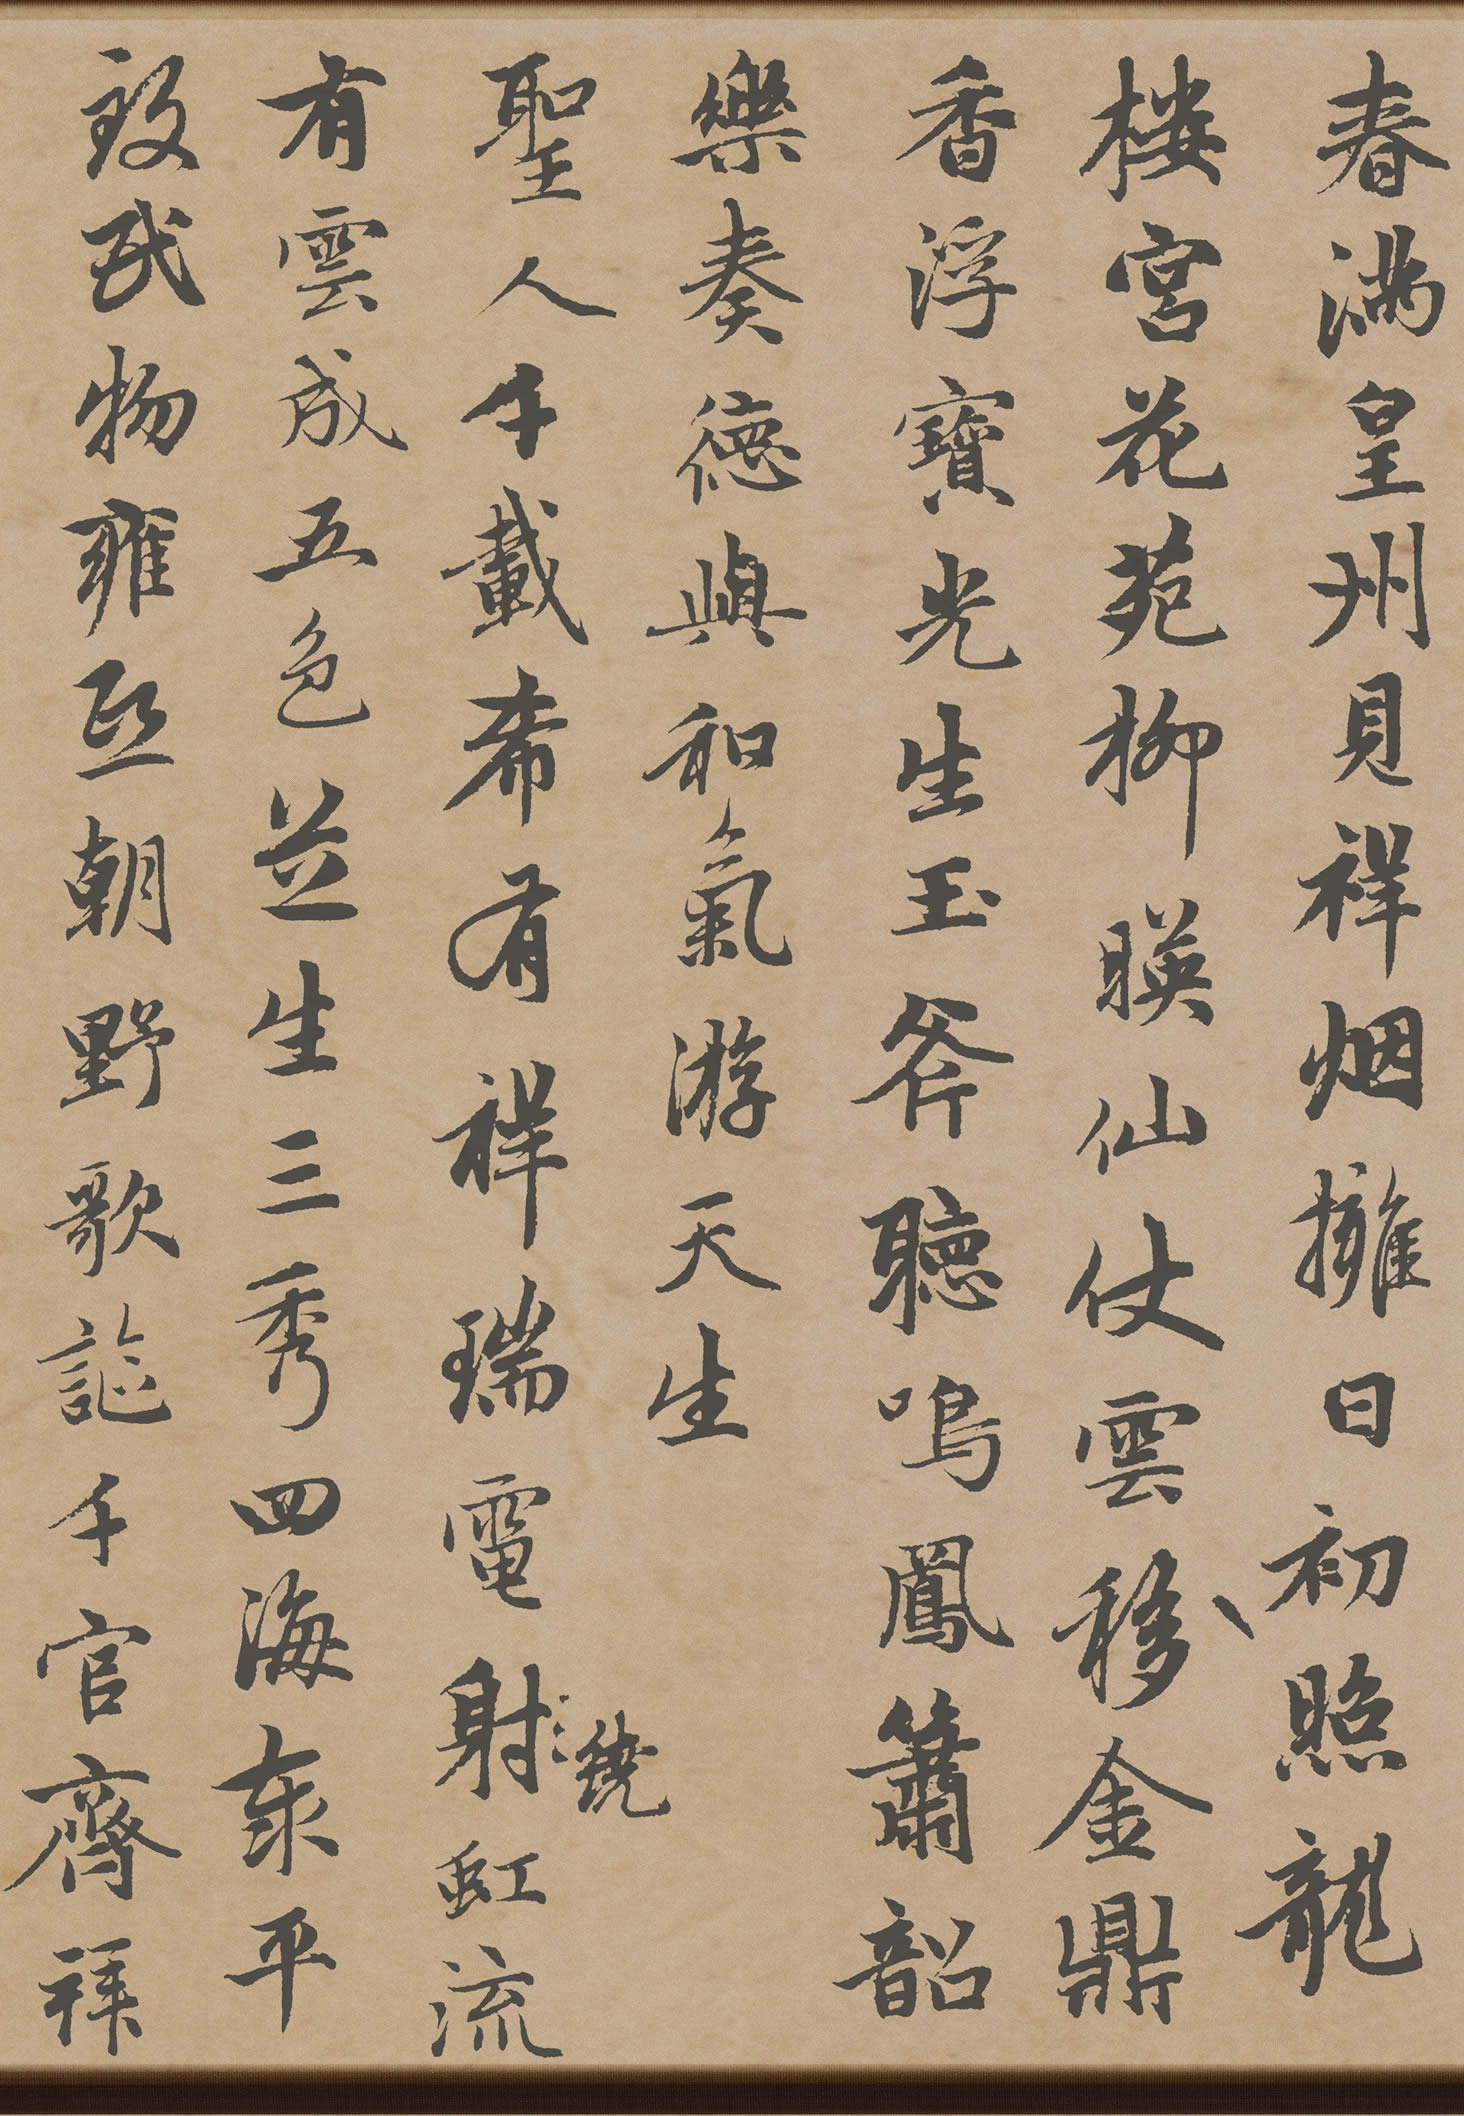 春滿皇州見祥烟擁日初照龍
楼宮花苑柳暎仙仗雲移金鼎
香浮寶光生玉斧聽鳴鳳簫韶
樂奏德與和氣游天生
聖人千載希有祥瑞電射繞虹流
有雲成五色芝生三秀四海泰平
致民物雍熙朝野歌謳千官齊拜